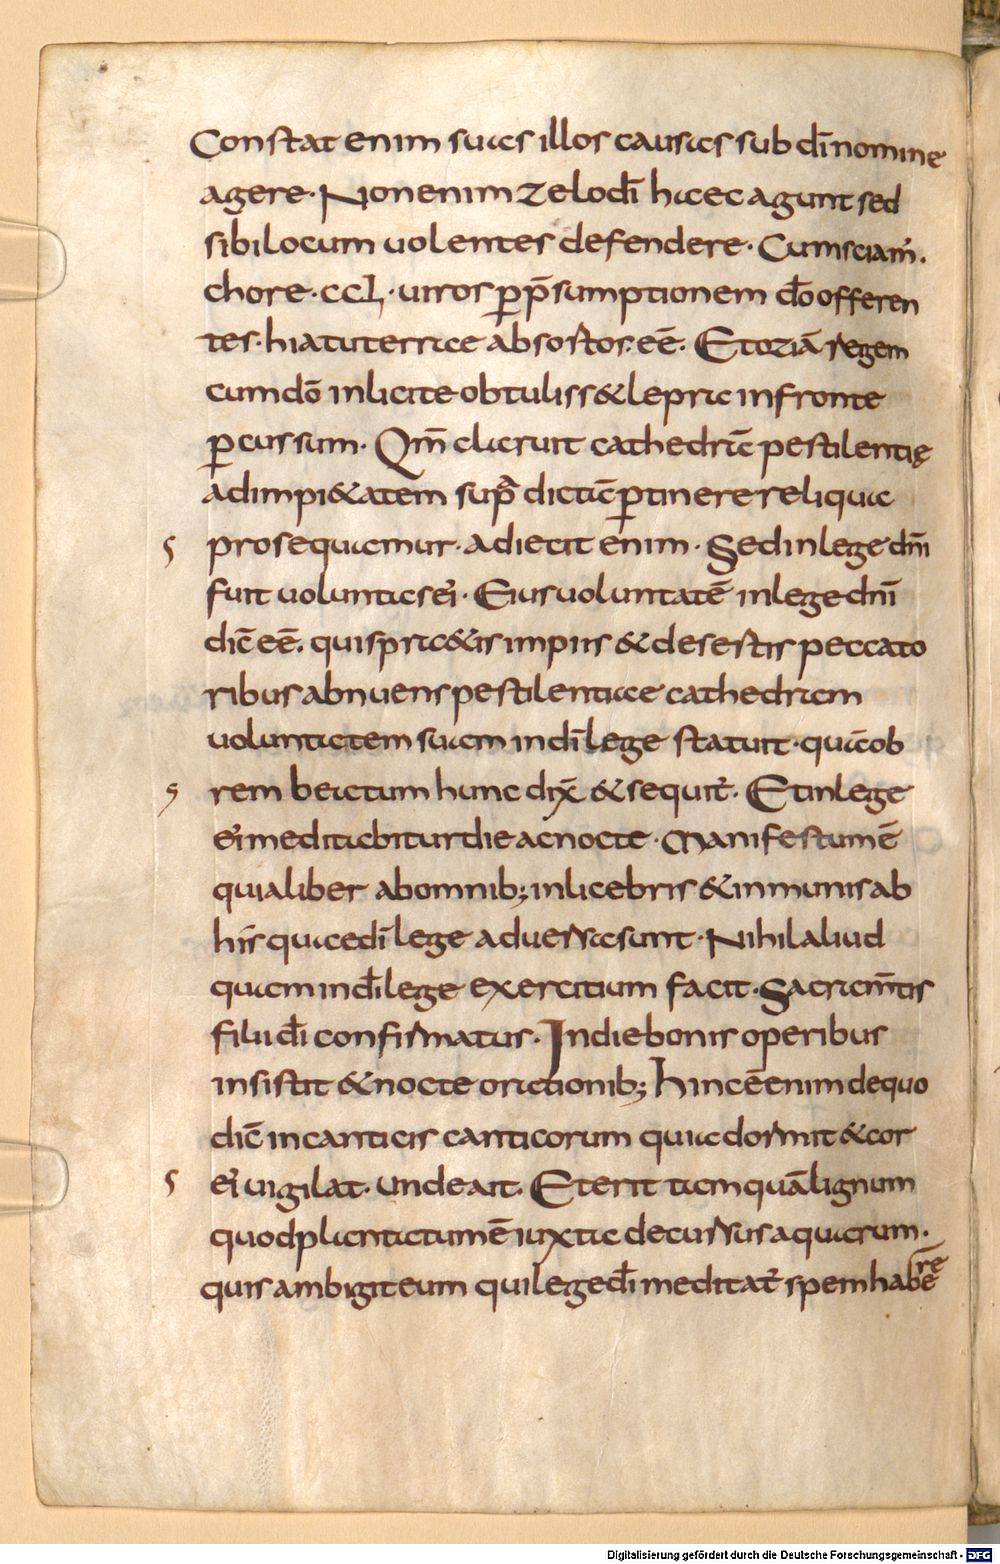 Constat enim suas illos causas sub dī nomine
agere. Non enim zelo dī haec agunt sed
sibi locum uolentes defendere. Cum sciam̄.
chore. ccl. uiros p̱ p̄sumptionem dō offeren
tes. hiatu terrae absortos. eē. Et oziā regem
cum dō inlicite obtuliss& lepra in fronte
p̱cussum. Qm̄ claruit cathedrā pestilentię
ad impi&atem sup̄ dictā p̱tinere reliqua
prosequamur. adiecit enim. Sed in lege dn̄i
fuit uoluntas ei'. Eius uoluntatē in lege dn̄i
dic̄ eē. qui spr&is impiis & desestis peccato
ribus abnuens pestilentiae cathedram
uoluntatem suam in dī lege statuit. quāob
rem beatum hunc dix̄ & sequit'. Et in lege
ei' meditabitur die ac nocte. Manifestum ē
quia liber ab omnib; inlicebris & inmunis ab
his quae dī lege aduersa sunt. Nihil aliud
quam in dī lege exercitium facit. Sacram̄tis
filii dī confirmatus. In die bonis operibus
insistit & nocte orationib; hinc ē enim de quo
dic̄ in canticis canticorum quia dormit & cor
ei' uigilat. unde ait. Et erit tamquā lignum
quod plantatum ē iuxta decursus aquarum.
quis ambigit eum qui lege dī meditat' spem habere
Digitalisierung gefördert durch die Deutsche Forschungsgemeinschaft - DFG